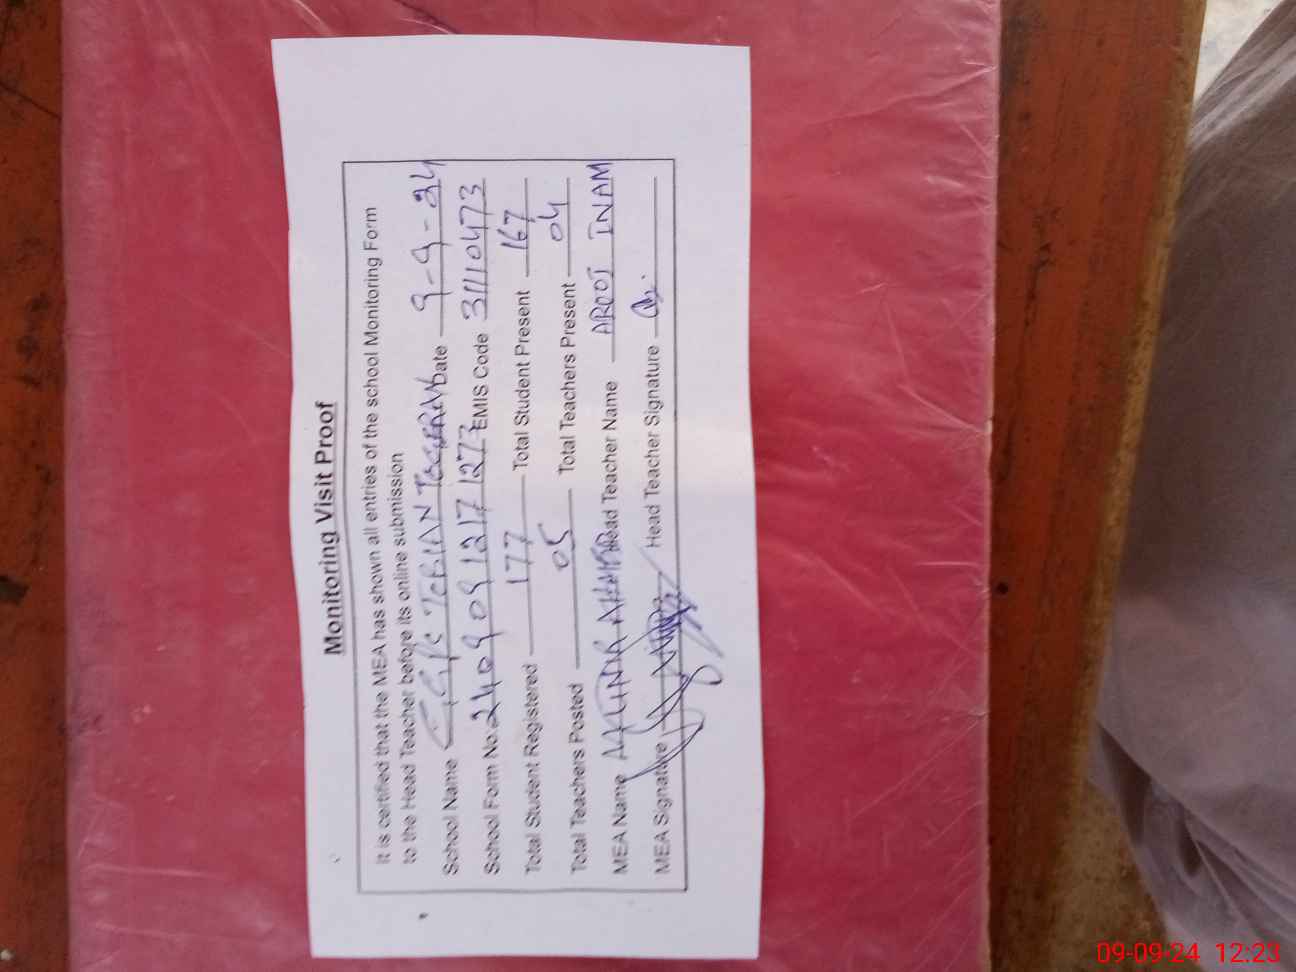 Monitoring Visit Proof
It is certified that the MEA has shown all entries of the school Monitoring Form
to the Head Teacher before its online submission
School Name Date 9-9-24
School Form No. 2409091217 1273 EMIS Code 31110473
Total Student Registered 177 Total Student Present 167
Total Teachers Posted 05 Total Teachers Present 04
MEA Name Head Teacher Name AROOJ INAM
MEA Signature Head Teacher Signature
09-09-24 12:23